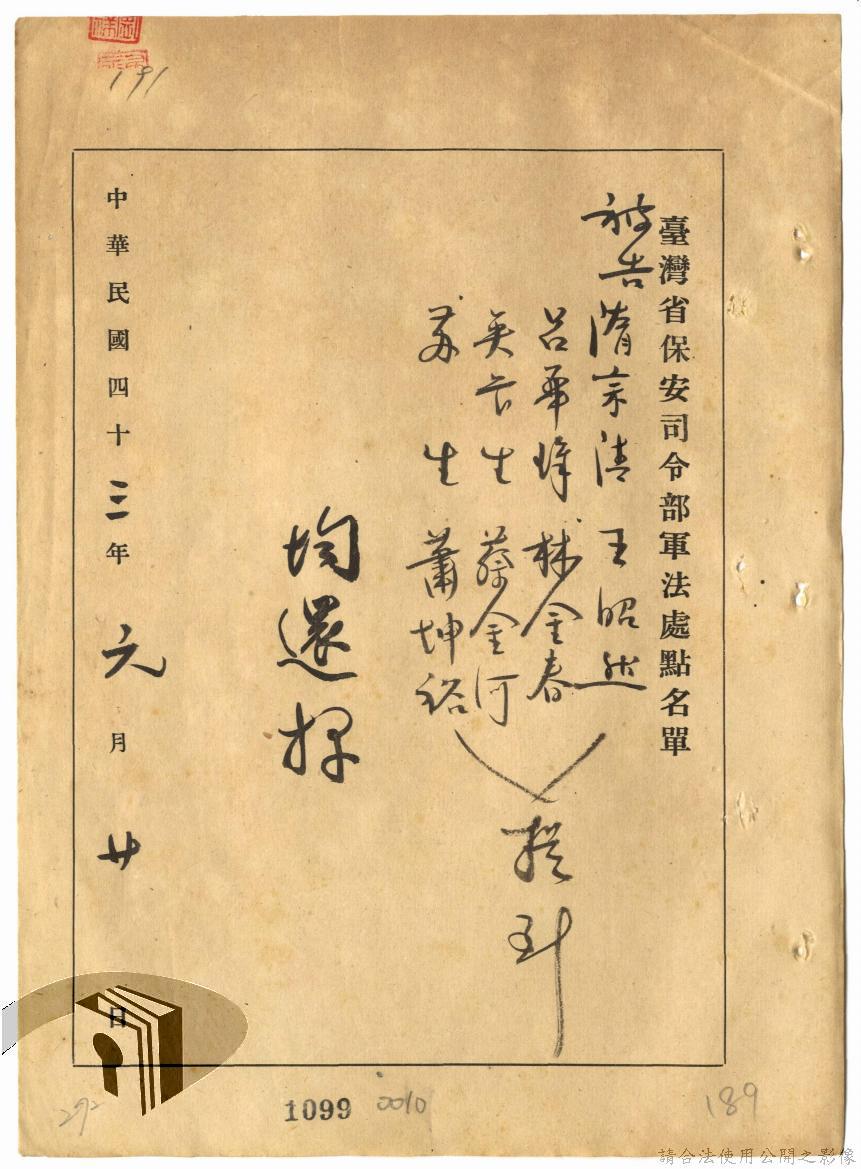 191
臺灣省保安司令部軍法處點名單
被告隋宗清 王昭然
呂華璋 林金春
吳長生 蔡金河
蘇 生 蕭坤裕
提到
均還押
中華民國四十三年元月廿日
292
1099
0010
189
請合法使用公開之影像